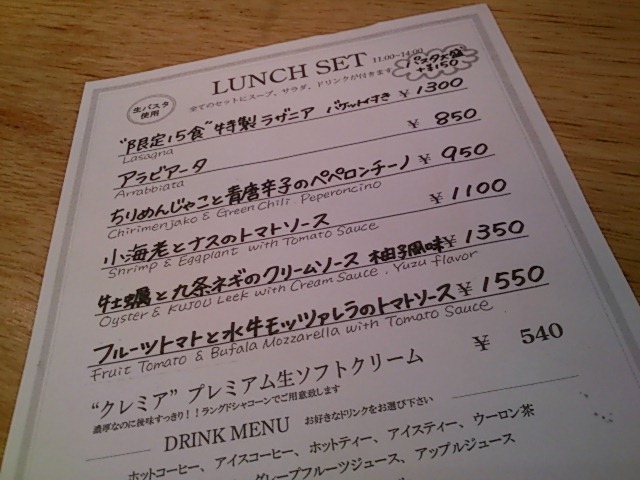 LUNCH SET 11:00~14:00
全てのセットにスープ、サラダ、ドリンクが付きます
パスタ大盛
+¥150
生パスタ
使用
"限定15食"特製 ラザニア バケット付き ¥ 1300
Lasagna
アラビアータ ¥ 850
Arrabbiata
ちりめんじゃこと青唐辛子のペペロンチーノ ¥ 950
Chirimenjako & Green Chili Peperoncino
小海老とナスのトマトソース ¥ 1100
Shrimp & Eggplant with Tomato Sauce
牡蠣と九条ネギのクリームソース 柚子風味 ¥ 1350
Oyster & KUJOU Leek with Cream Sauce, Yuzu flavor
フルーツトマトと水牛モッツァレラのトマトソース ¥ 1550
Fruit Tomato & Bufala Mozzarella with Tomato Sauce
"クレミア" プレミアム生ソフトクリーム ¥ 540
濃厚なのに後味すっきり!!ラングドシャコーンでご用意致します
DRINK MENU お好きなドリンクをお選び下さい
ホットコーヒー、アイスコーヒー、ホットティー、アイスティー、ウーロン茶
グレープフルーツジュース、アップルジュース